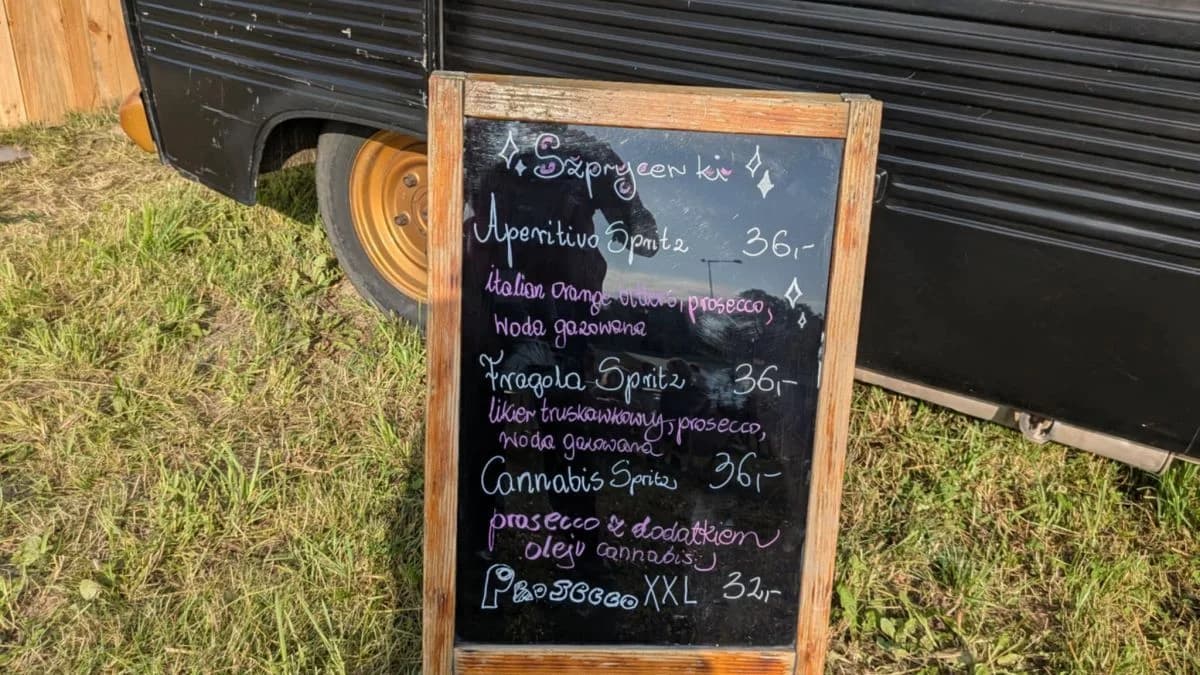 Szprycerki
Aperitivo Spritz 36,-
italian orange bitters, prosecco,
woda gazowana
Fragola Spritz 36,-
likier truskawkowy, prosecco,
woda gazowana
Cannabis Spritz 36,-
prosecco z dodatkiem
oleju cannabis
Prosecco XXL 32,-